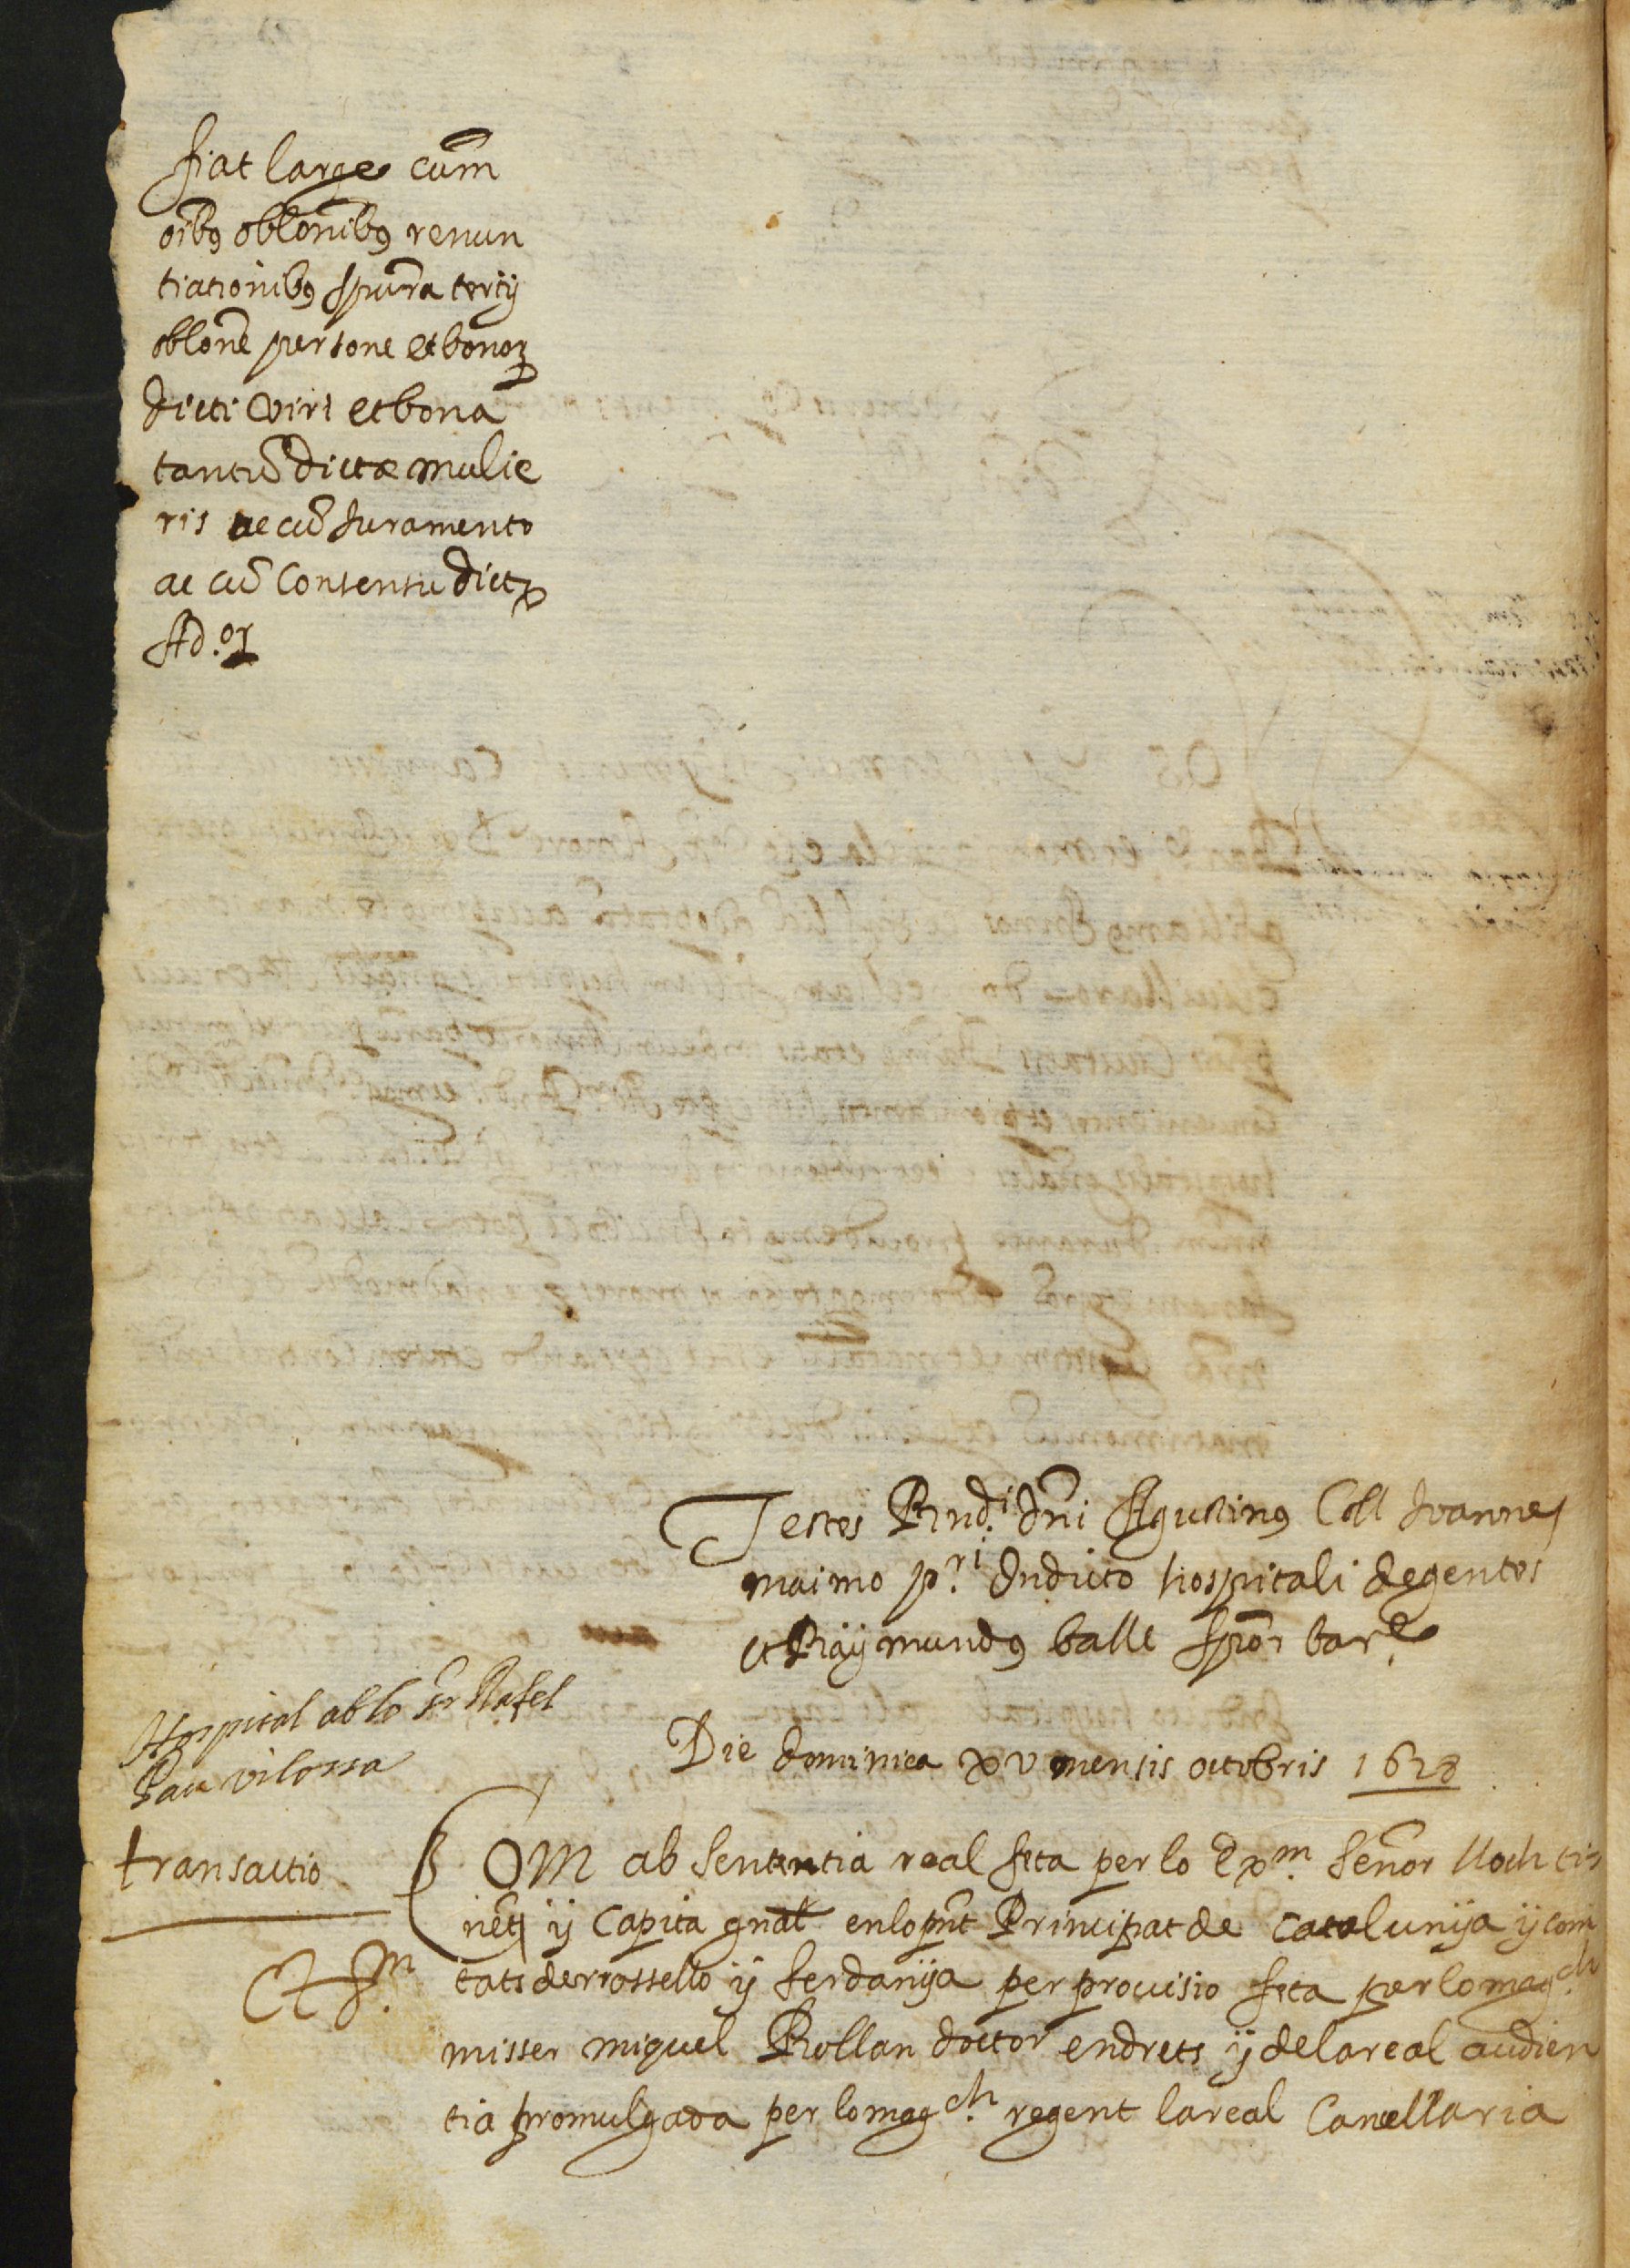 fiat large cum
oibus oblonibus renun
tiationibus spura tertij
oblone persone et bonor
dicti viri et bona
tantu dictæ mulie
ris ac cu Juramento
ac cu Consensu dict
Ad.or
Testes Rnd.i dni Agustinus Coll Joannes
maimo p.ri Indicto hospitali degentes
et Raÿmundus balle
Die dominica xv mensis octobris 1628
Hospital ab lo sr Rafel
Pau vilossa
transactio
COM ab Sententia real feta per lo Exm. Señor lloch tin
nẽt ij Capita gnal en lo pnt Principat de Catalunÿa ÿ com
tats de rossello ÿ Serdanÿa per provisio feta per lo magch.
misser miquel Rollan doctor en drets ÿ de la real audien
tia promulgada per lo magch. regent la real Cancellaria